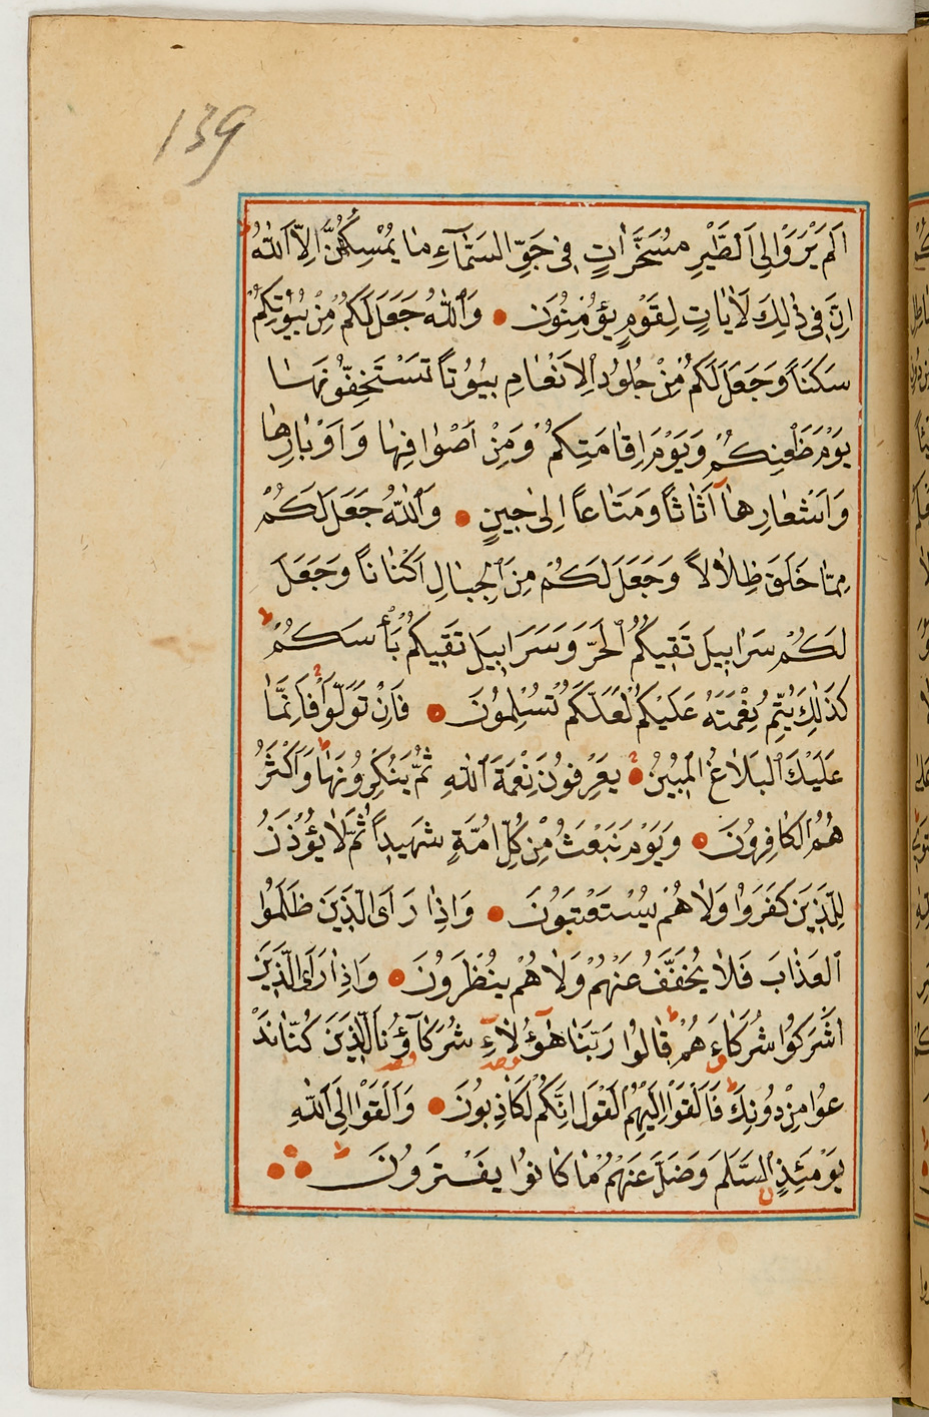 139
اَلَمْ يَرَوْا اِلَى الطَّيْرِ مُسَخَّرَاتٍ فِى جَوِّ السَّمَآءِ مَا يُمْسِكُهُنَّ اِلَّا اللّٰهُ ط
اِنَّ فِى ذٰلِكَ لَاٰيَاتٍ لِقَوْمٍ يُؤْمِنُونَ وَاللّٰهُ جَعَلَ لَكُمْ مِنْ بُيُوتِكُمْ
سَكَنًا وَجَعَلَ لَكُمْ مِنْ جُلُودِ الْاَنْعَامِ بُيُوتًا تَسْتَخِفُّونَهَا
يَوْمَ ظَعْنِكُمْ وَيَوْمَ اِقَامَتِكُمْ وَمِنْ اَصْوَافِهَا وَاَوْبَارِهَا
وَاَشْعَارِهَا اَثَاثًا وَمَتَاعًا اِلٰى حِينٍ وَاللّٰهُ جَعَلَ لَكُمْ
مِمَّا خَلَقَ ظِلَالًا وَجَعَلَ لَكُمْ مِنَ الْجِبَالِ اَكْنَانًا وَجَعَلَ
لَكُمْ سَرَابِيلَ تَقِيكُمُ الْحَرَّ وَسَرَابِيلَ تَقِيكُمْ بَأْسَكُمْ ط
كَذٰلِكَ يُتِمُّ نِعْمَتَهُ عَلَيْكُمْ لَعَلَّكُمْ تُسْلِمُونَ فَاِنْ تَوَلَّوْا فَاِنَّمَا
عَلَيْكَ الْبَلَاغُ الْمُبِينُ يَعْرِفُونَ نِعْمَةَ اللّٰهِ ثُمَّ يُنْكِرُونَهَا وَاَكْثَرُ
هُمُ الْكَافِرُونَ وَيَوْمَ نَبْعَثُ مِنْ كُلِّ اُمَّةٍ شَهِيدًا ثُمَّ لَا يُؤْذَنُ
لِلَّذِينَ كَفَرُوا وَلَا هُمْ يُسْتَعْتَبُونَ وَاِذَا رَاَى الَّذِينَ ظَلَمُوا
الْعَذَابَ فَلَا يُخَفَّفُ عَنْهُمْ وَلَا هُمْ يُنْظَرُونَ وَاِذَا رَاَى الَّذِينَ
اَشْرَكُوا شُرَكَاءَ هُمْ قَالُوا رَبَّنَا هٰٓؤُلَاءِ شُرَكَآؤُنَا الَّذِينَ كُنَّا نَدْ
عُوا مِنْ دُونِكَ فَاَلْقَوْا اِلَيْهِمُ الْقَوْلَ اِنَّكُمْ لَكَاذِبُونَ وَاَلْقَوْا اِلَى اللّٰهِ
يَوْمَئِذٍ السَّلَمَ وَضَلَّ عَنْهُمْ مَا كَانُوا يَفْتَرُونَ ط